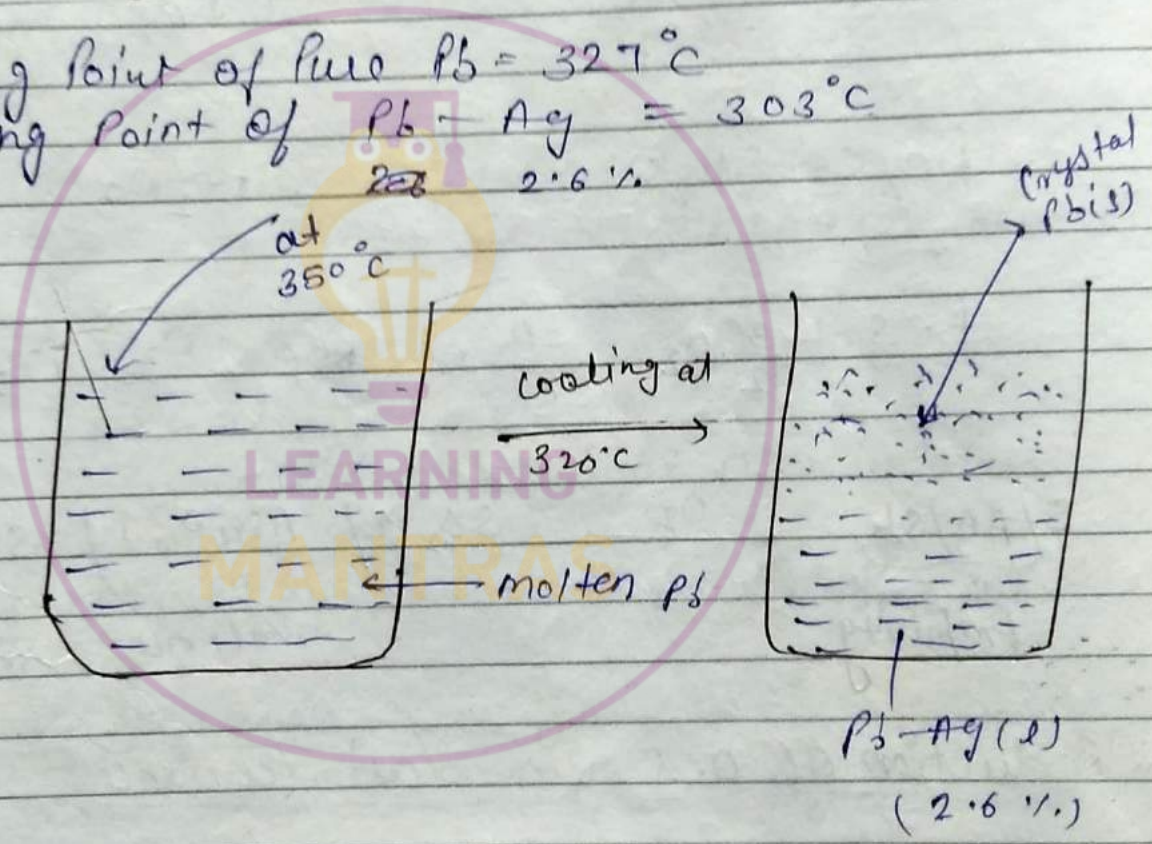 g Point of Pure Pb = 327°C
ng Point of Pb - Ag = 303°C
2.6 %
Crystal
Pb(s)
at
350°C
cooling at
320°C
LEARNING
MANTRAS
molten Pb
Pb-Ag(l)
(2.6 %)